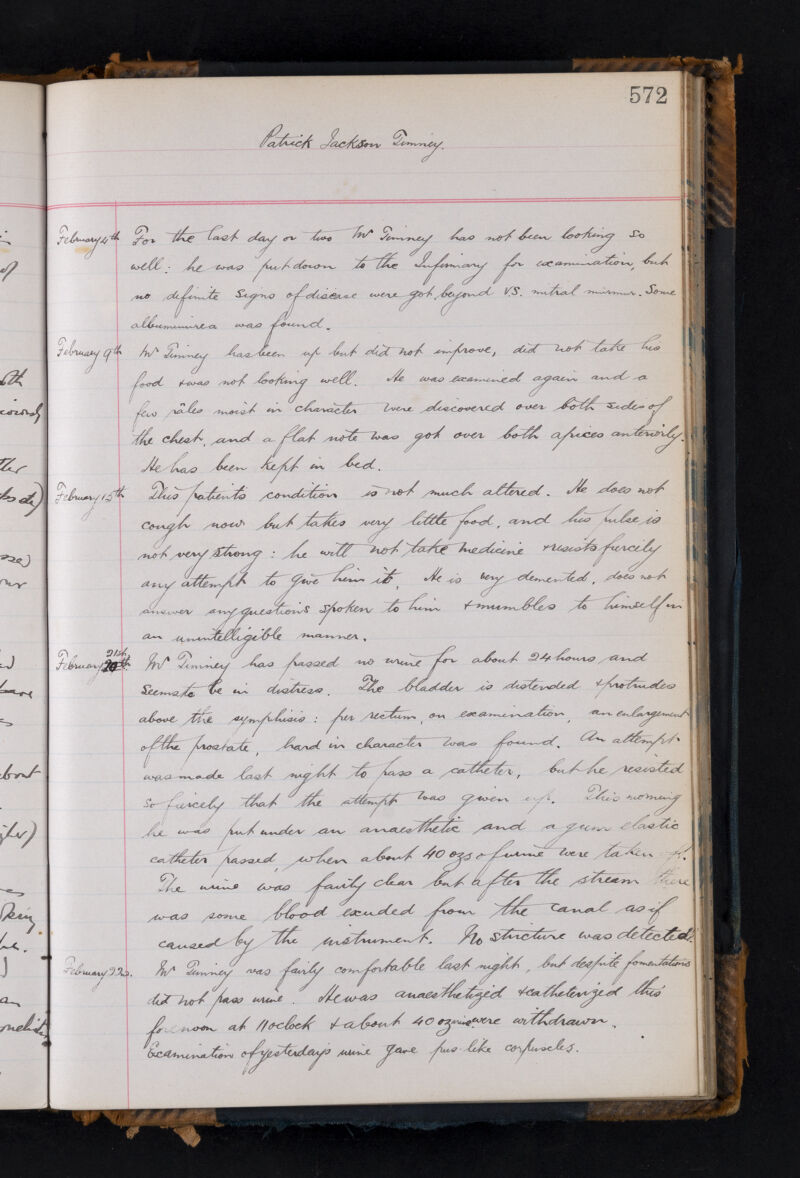 572
Patrick Jackson Timney.
February 4th For the last day or two Mr Timney has not been looking so
well: he was put down to the Infirmary for examination, but
no definite signs of disease were got beyond V.S. mitral murmur. Some
albuminurea was found.
February 9th Mr Timney has been up but did not improve, did not take his
food & was not looking well. He was examined again and a
few râles moist in character were discovered over both sides of
the chest, and a flat note was got over both apices anteriorly.
He has been kept in bed.
February 15th This patient's condition is not much altered. He does not
cough now but takes very little food, and his pulse is
not very strong: he will not take medicine & resists fiercily
any attempt to give him it. He is very demented, does not
answer any questions spoken to him & mumbles to himself in
an unintelligible manner.
February 21st Mr Timney has passed no urine for about 24 hours and
seems to be in distress. The bladder is distended & protrudes
above the symphisis: per rectum, on examination, an enlargement
of the prostate, hard in character was found. An attempt
was made last night to pass a catheter, but he resisted
so fiercely that the attempt was given up. This morning
he was put under an anaesthetic and a gum elastic
catheter passed, when about 40 ozs of urine were taken off.
The urine was fairly clear but after the stream there
was some blood exuded from the canal as if
caused by the instrument. No stricture was detected.
February 22. Mr Timney was fairly comfortable last night, but despite fomentations
did not pass urine. He was anaesthetized & catheterized this
forenoon at 11 oclock & about 40 ozs were withdrawn.
Examination of yesterday's urine gave pus-like corpuscles.